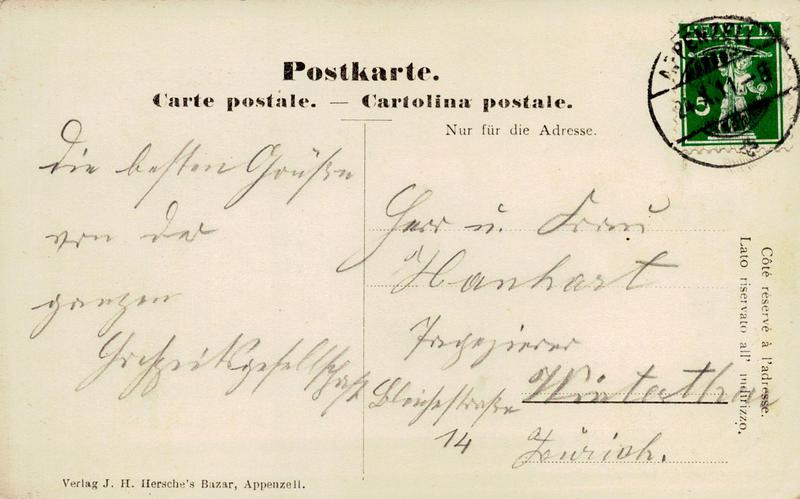 HELVETIA
APPENZELL
5
Postkarte.
Carte postale. — Cartolina postale.
Nur für die Adresse.
Die besten Grüße
von der
ganzen
Hochzeitsgesellschaft
Herr u. Frau
Hanhart
Tapezierer
Bleichestraße
14
Winterthur
Zürich.
Côté réservé à l'adresse.
Lato riservato all' indirizzo.
Verlag J. H. Hersche's Bazar, Appenzell.